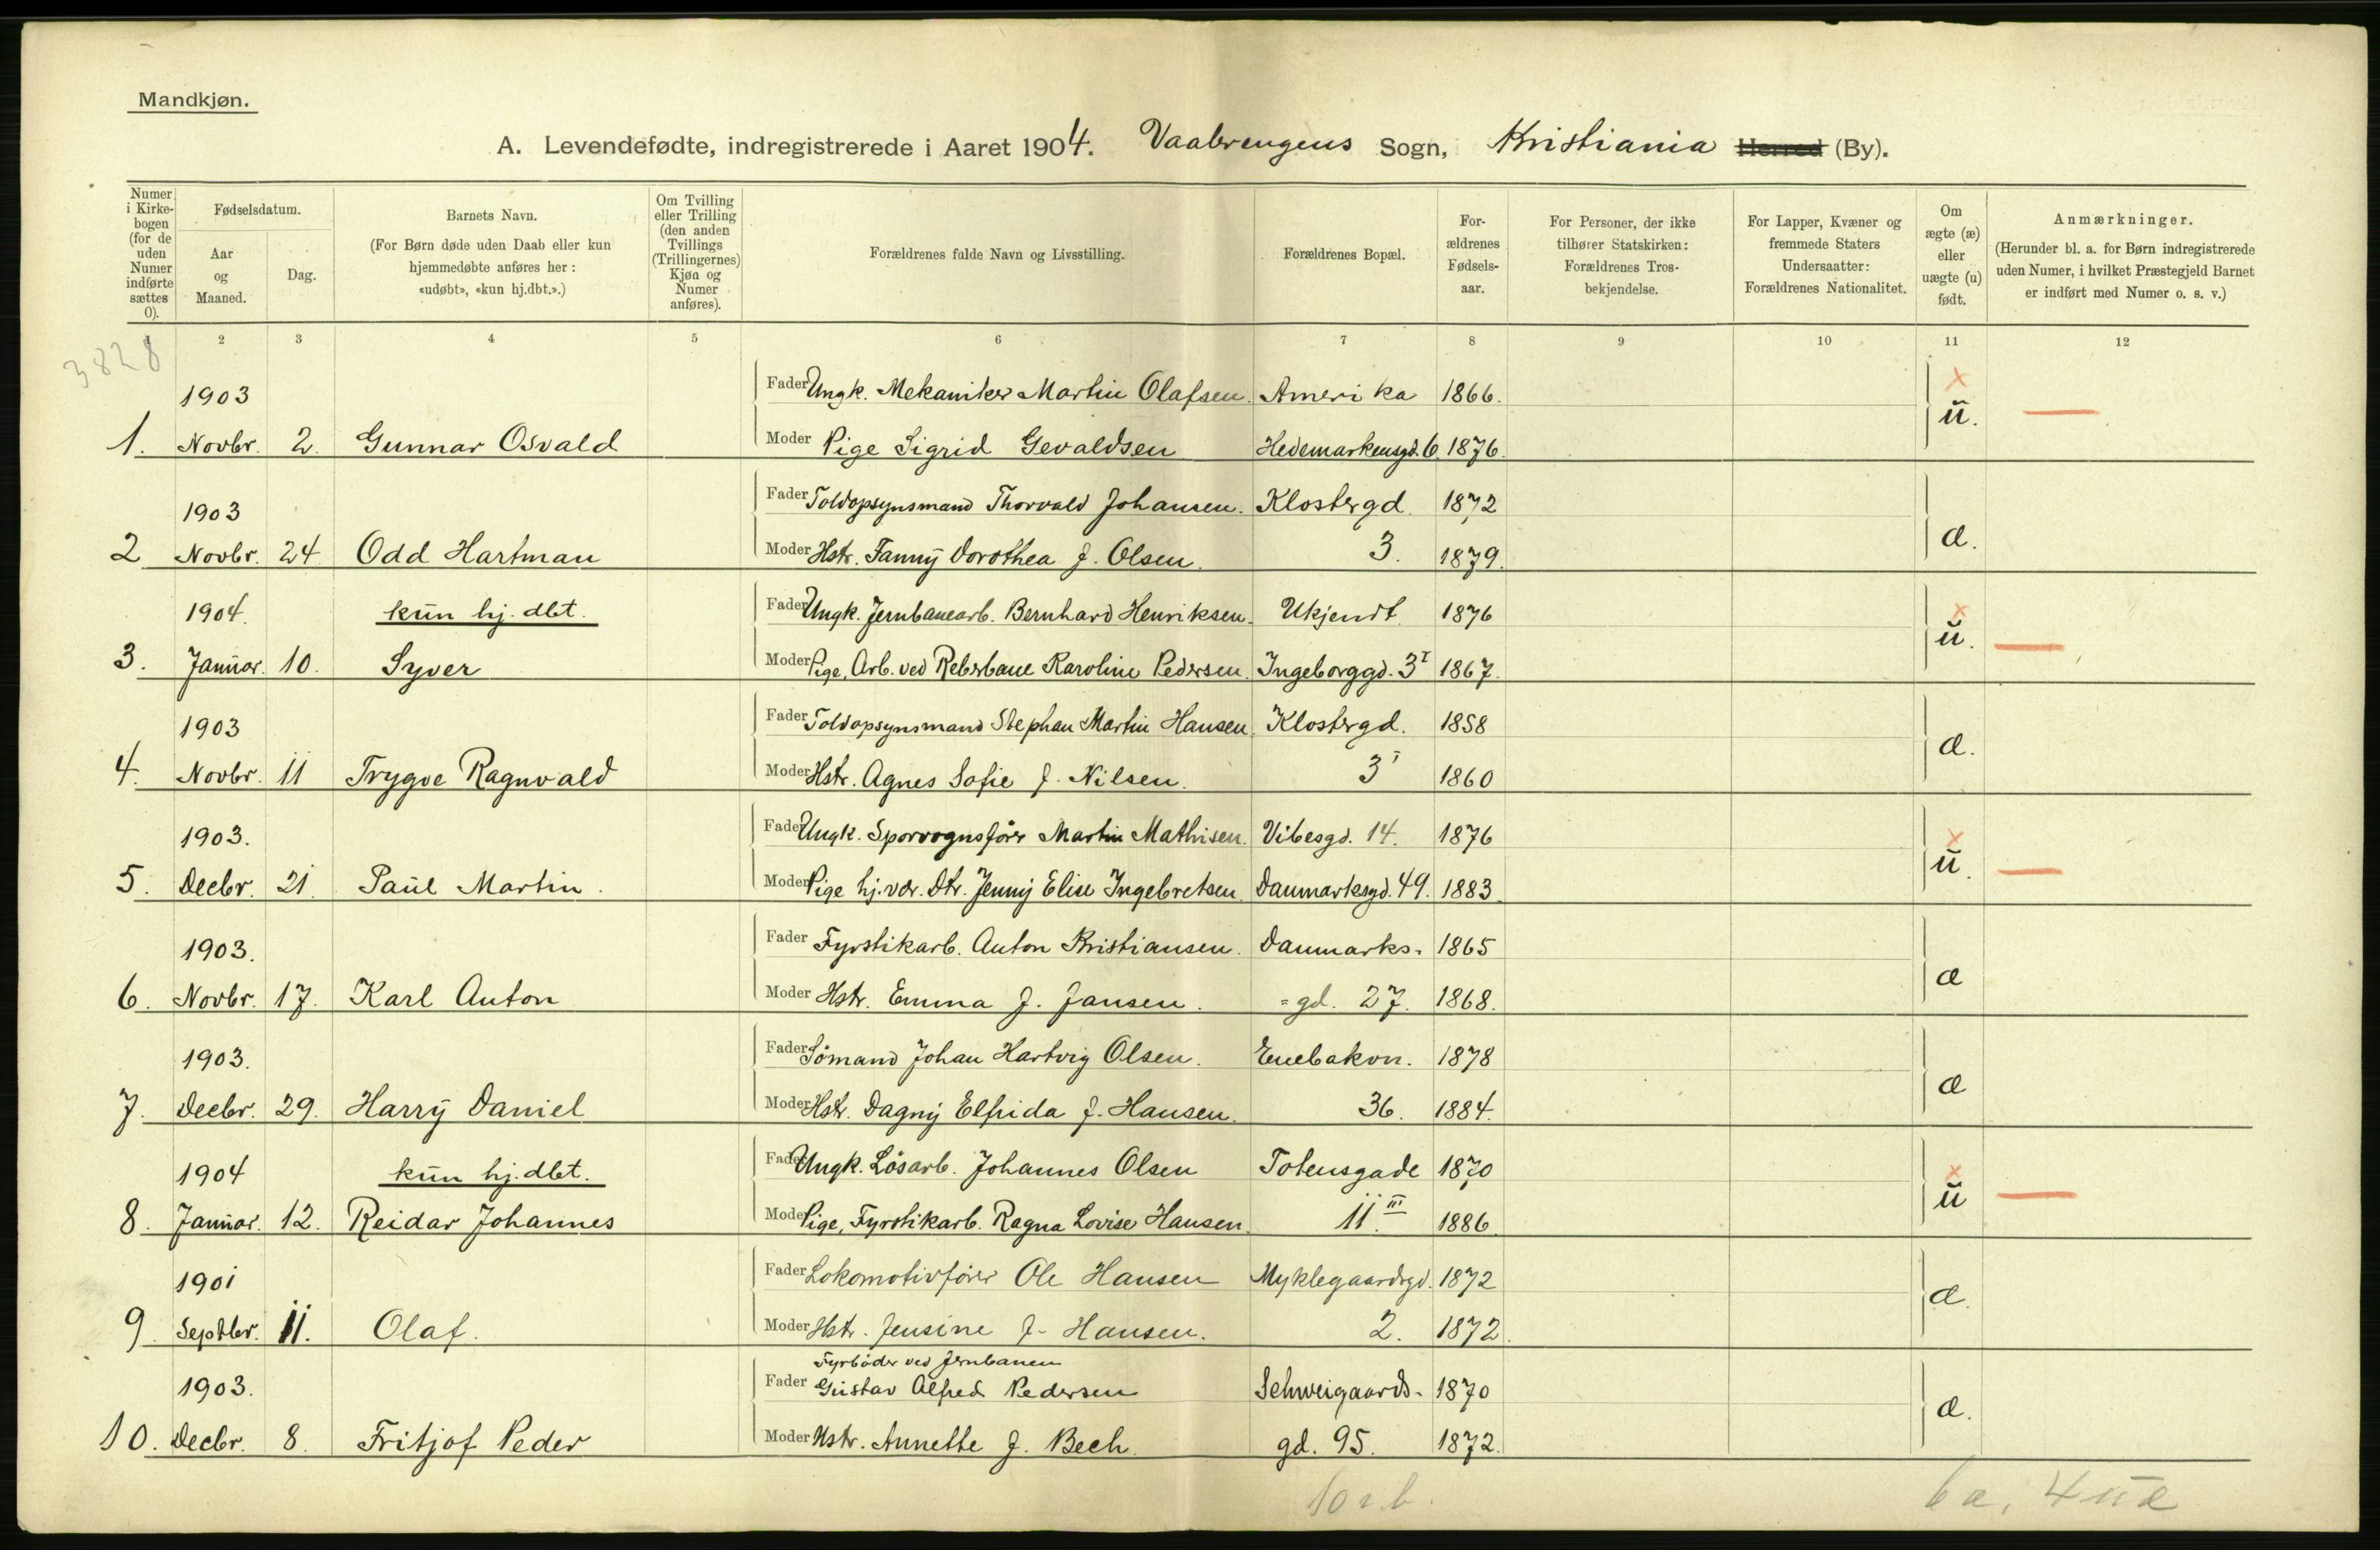 Mandkjøn.
A. Levendefødte, indregistrerede i Aaret 1904. Vaalerengens Sogn, Kristiania Herred (By).
Numer i Kirkebogen (for de uden Numer indførte sættes 0).
Fødselsdatum.
Aar og Maaned.
Dag.
Barnets Navn.
(For Børn døde uden Daab eller kun hjemmedøbte anføres her: «udøbt», «kun hj.dbt.».)
Om Tvilling eller Trilling (den anden Tvillings (Trillingernes) Kjøn og Numer anføres).
Forældrenes fulde Navn og Livsstilling.
Forældrenes Bopæl.
Forældrenes Fødselsaar.
For Personer, der ikke tilhører Statskirken: Forældrenes Trosbekjendelse.
For Lapper, Kvæner og fremmede Staters Undersaatter: Forældrenes Nationalitet.
Om ægte (æ) eller uægte (u) født.
Anmærkninger.
(Herunder bl. a. for Børn indregistrerede uden Numer, i hvilket Præstegjeld Barnet er indført med Numer o. s. v.)
1 2 3 4 5 6 7 8 9 10 11 12
3828
1903 Fader Ungk. Mekaniker Martin Olafsen. Amerika 1866. x
1. Novbr. 2. Gunnar Osvald Moder Pige Sigrid Gevaldsen Hedemarkensgd. 6. 1876. u.
1903 Fader Toldopsynsmand Thorvald Johansen. Klostergd. 1872
2 Novbr. 24 Odd Hartman Moder Hstr. Fanny Dorothea f. Olsen. 3. 1879. æ.
1904. kun hj. dbt. Fader Ungk. Jernbanearb. Bernhard Henriksen. Ukjendt. 1876 x
3. Januar. 10. Syver Moder Pige, Arb. ved Reberbane Karoline Pedersen. Ingeborggd. 3 I 1867. u.
1903 Fader Toldopsynsmand Stephan Martin Hansen. Klostergd. 1858
4. Novbr. 11 Trygve Ragnvald Moder Hstr. Agnes Sofie f. Nilsen. 3 I 1860 æ.
1903. Fader Ungk. Sporvognsfører Martin Mathisen. Vibesgd. 14. 1876 x
5. Decbr. 21. Paul Martin. Moder Pige hj. vær. Dtr. Jenny Elise Ingebretsen. Danmarksgd. 49. 1883. u.
1903. Fader Fyrstikarb. Anton Kristiansen. Danmarks- 1865
6. Novbr. 17. Karl Anton Moder Hstr. Emma f. Jansen. =gd. 27. 1868. æ
1903. Fader Sömand Johan Hartvig Olsen. Enebakvn. 1878
7. Decbr. 29. Harry Daniel Moder Hstr. Dagny Elfrida f. Hansen. 36. 1884. æ
1904 kun hj. dbt. Fader Ungk. Lösarb. Johannes Olsen Totensgade 1870 x
8. Januar. 12. Reidar Johannes Moder Pige, Fyrstikarb. Ragna Lovise Hansen. 11. III 1886. u
1901 Fader Lokomotivfører Ole Hansen Myklegaardsgd. 1872
9. Septbr. 11. Olaf. Moder Hstr. Jensine f. Hansen. 2. 1872. æ.
Fyrböder ved Jernbanen
1903. Fader Gustav Alfred Pedersen Schweigaards- 1870
10. Decbr. 8. Fritjof Peder Moder Hstr. Annette f. Bech. gd. 95. 1872. æ.
6 æ, 4 uæ